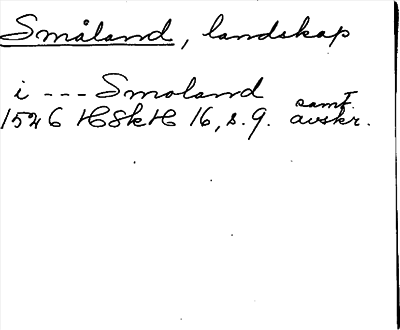 Småland, landskap
i --- Smoland
1526 HSkH 16, s. 9. samt. avskr.